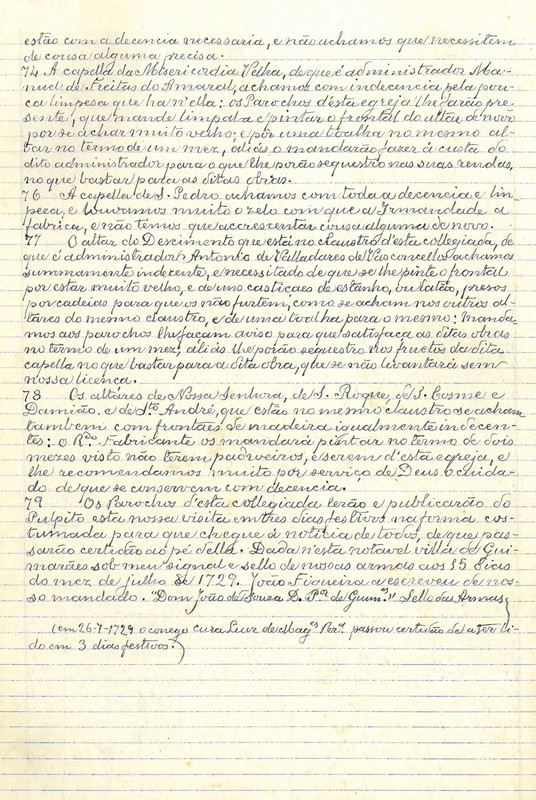 estão com a decencia necessaria, e não achamos que necessitem
de cousa alguma precisa.
74 A capella da Misericordia Velha, de que é administrador Ma-
nuel de Freitas do Amaral, achamos com indecencia pela pou-
ca limpesa que ha n'ella: os Parochos d'esta egreja lhe farão pre-
sente, que mande limpal-a e pintar o frontal do altar de novo
por se achar muito velho; e pôr uma toalha no mesmo al-
tar no termo de um mez, aliás o mandarão fazer á custa do
dito administrador para o que lhe porão sequestro nas suas rendas,
no que bastar para as ditas obras.
76 A capella de S. Pedro achamos com toda a decencia e lim-
peza, e louvamos muito o zelo com que a Irmandade a
fabrica, e não temos que accrescentar cousa alguma de novo.
77 O altar do Descimento que está no claustro d'esta collegiada, de
que é administrador Antonio de Valladares de Vasconcellos achamos
summamente indecente, e necessita de que se lhe pinte o frontal
por estar muito velho, e de uns castiçaes de estanho, ou latão, presos
por cadeias para que os não furtem, como se acham nos outros al-
tares do mesmo claustro, e de uma toalha para o mesmo: Manda-
mos aos parochos lhe façam aviso para que satisfaça as ditas obras
no termo de um mez, aliás lhe porão sequestro nos fructos da dita
capella no que bastar para a dita obra, que se não levantará sem
nossa licença.
78 Os altares de Nossa Senhora, de S. Roque, de S. Cosme e
Damião, e de Sto André, que estão no mesmo claustro se acham
tambem com frontaes de madeira igualmente indecen-
tes: o R.do Fabricante os mandará pintar no termo de dois
mezes visto não terem padroeiros, e serem d'esta egreja, e
lhe recomendamos muito por serviço de Deus o cuida-
do de que se conservem com decencia.
79 Os Parochos d'esta collegiada lerão e publicarão do
Pulpito esta nossa visita em tres dias festivos na forma cos-
tumada para que chegue á noticia de todos, de que pas-
sarão certidão ao pé d'ella. Dada n'esta notavel villa de Gui-
marães sob meu signal e sello de nossas armas aos 15 dias
do mez de julho de 1729. João Figueira a escreveu de nos-
so mandado. "Dom João de Souza D. P.or de Guim.es" Sello das Armas
(em 26-7-1729 o conego cura Luiz de Mag.es Per.a passou certidão de a ter li-
do em 3 dias festivos.)